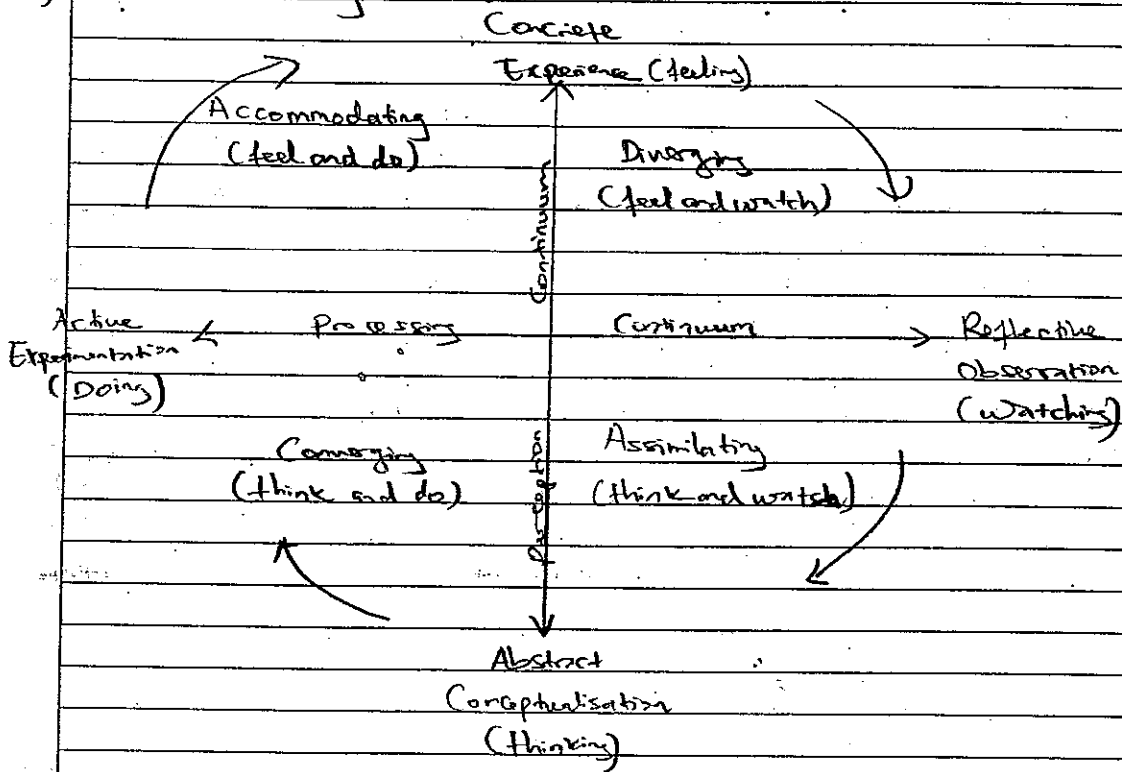 Concrete
Experience (feeling)
Accommodating
(feel and do)
Diverging
(feel and watch)
Continuum
Active
Experimentation
(Doing)
Processing
Continuum
Reflective
Observation
(watching)
Converging
(think and do)
Perception
Assimilating
(think and watch)
Abstract
Conceptualisation
(thinking)